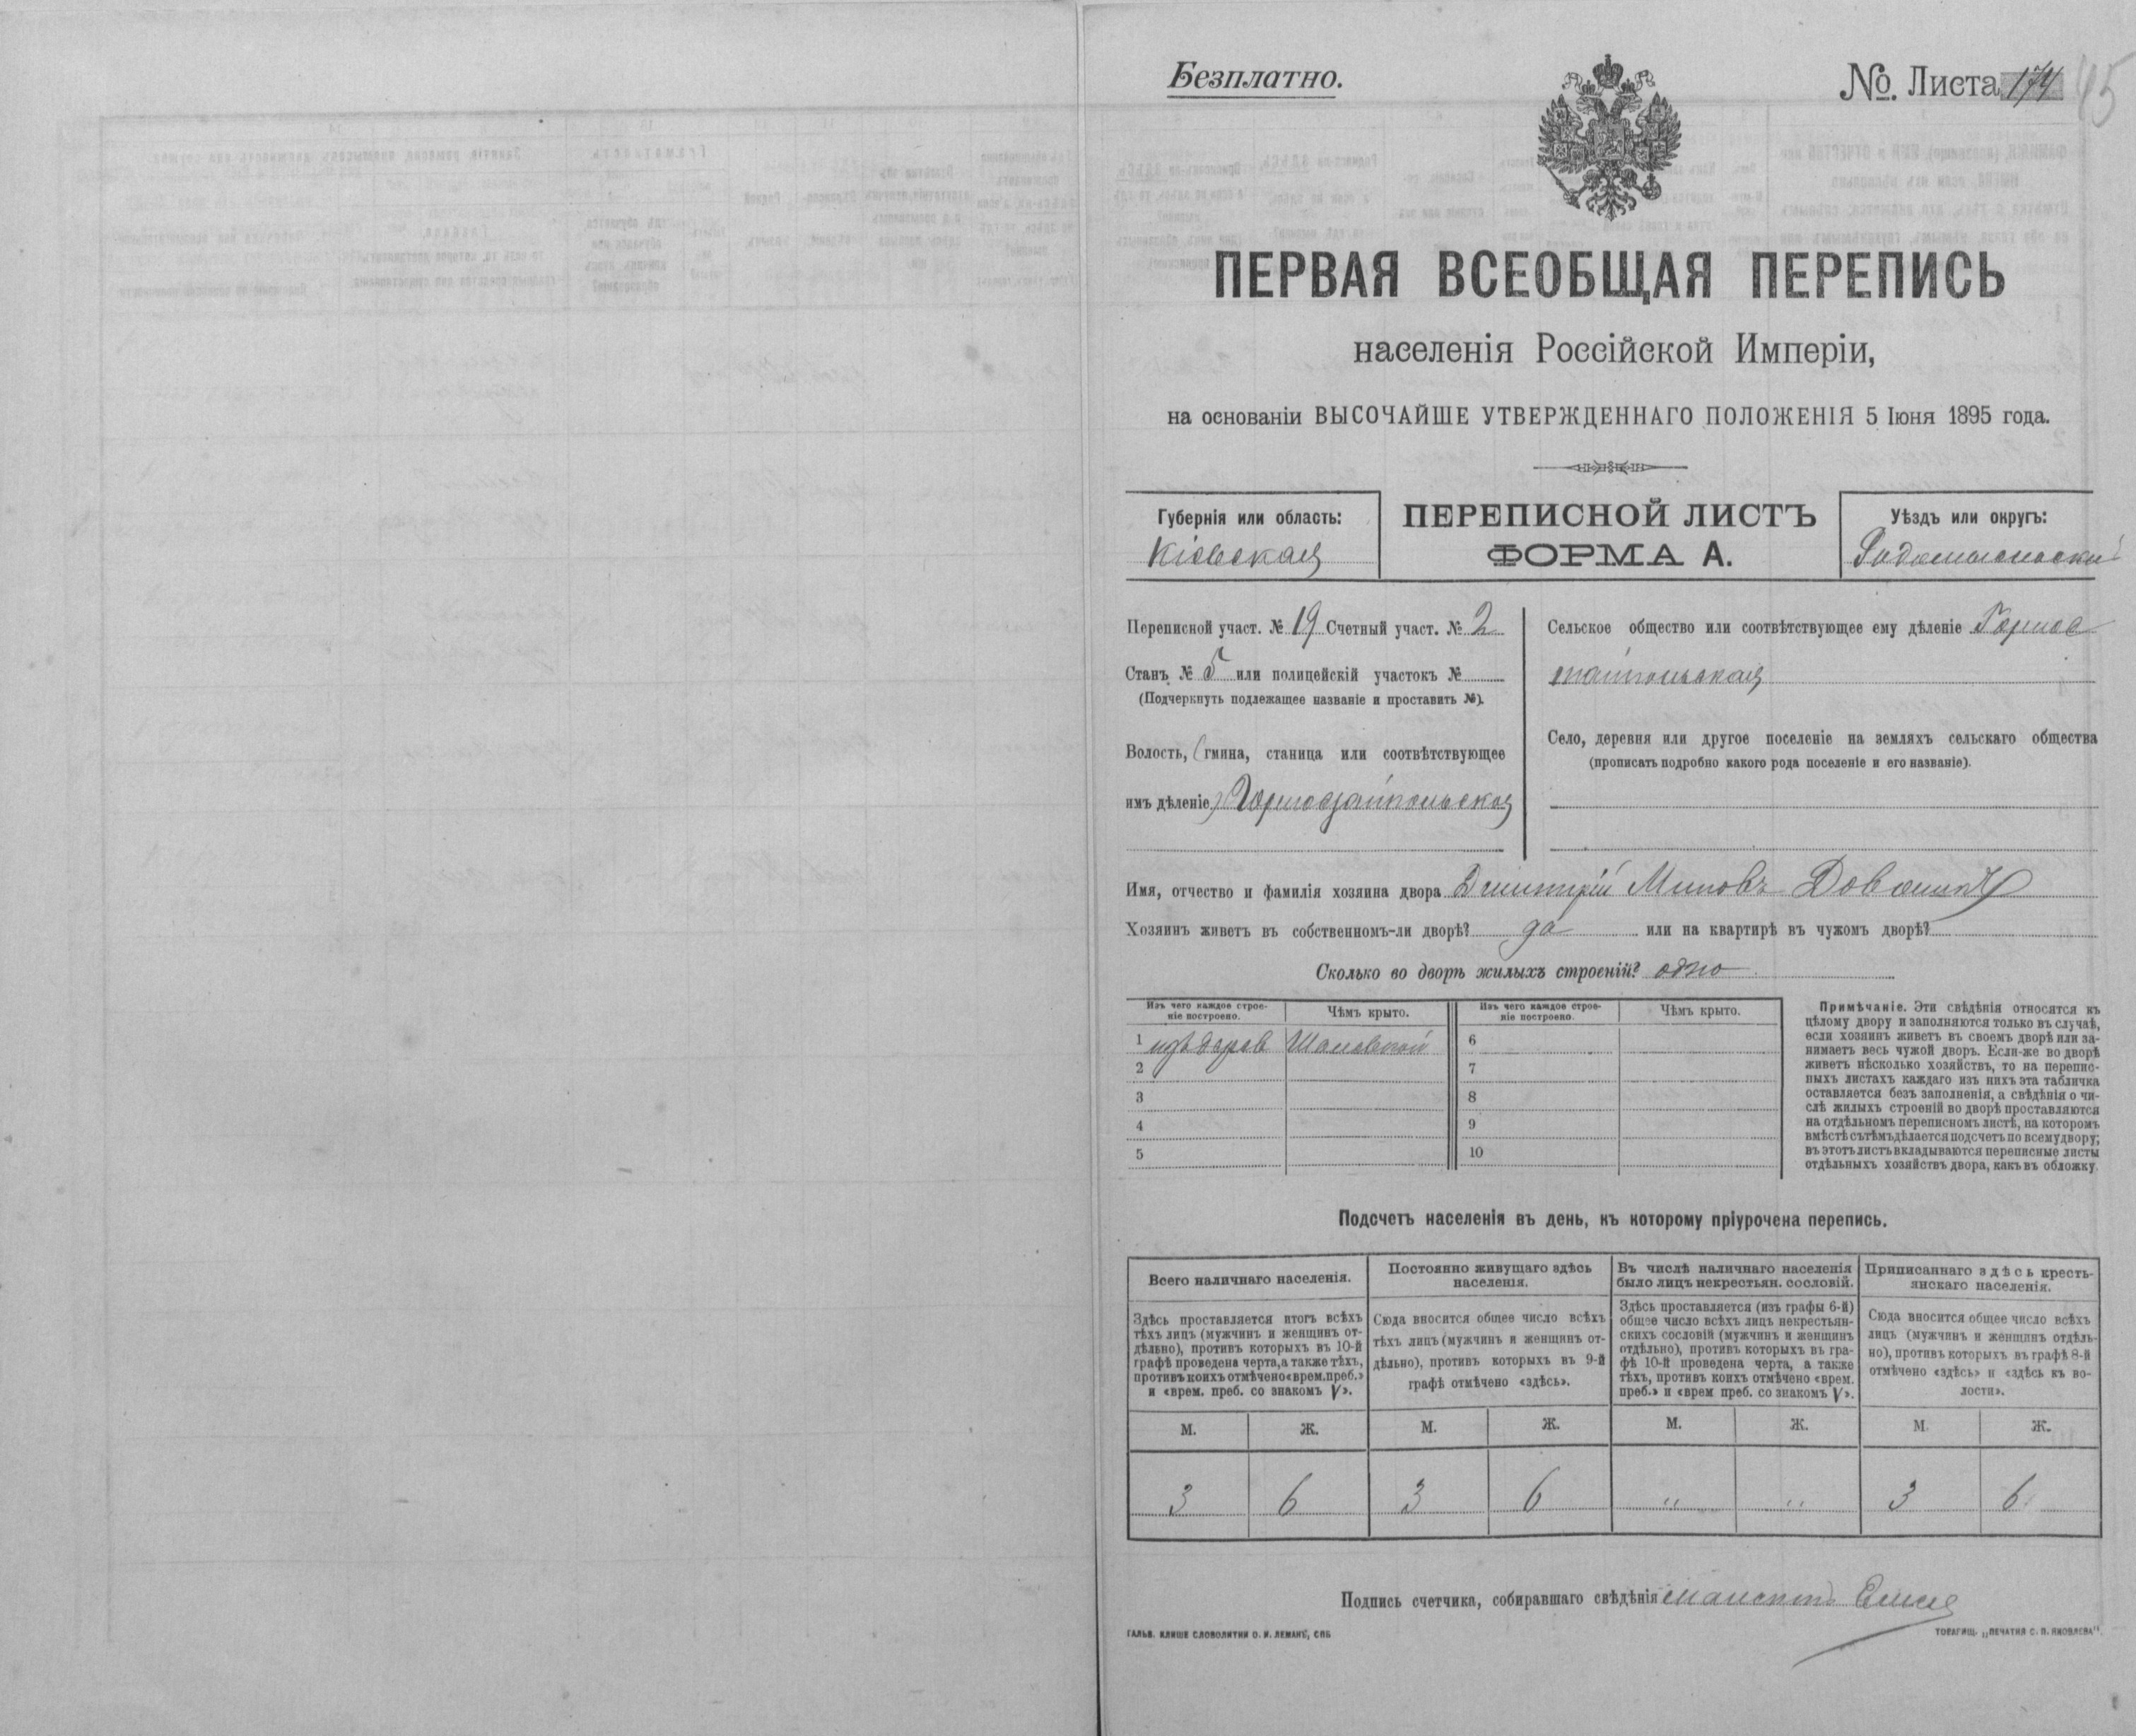 Безплатно.
№ Листа 174
45
ПЕРВАЯ ВСЕОБЩАЯ ПЕРЕПИСЬ
населенія Россійской Имперіи,
на основаніи ВЫСОЧАЙШЕ УТВЕРЖДЕННАГО ПОЛОЖЕНІЯ 5 Іюня 1895 года.
Губернія или область:
Кіевская
ПЕРЕПИСНОЙ ЛИСТЪ
ФОРМА А.
Уѣздъ или округъ:
Радомысльскій
Переписной участ. № 19 Счетный участ. № 2
Станъ № 5 или полицейскій участокъ №
(Подчеркнуть подлежащее названіе и проставить №).
Волость, (гмина, станица или соотвѣтствующее
имъ дѣленіе) Горностайпольская
Сельское общество или соотвѣтствующее ему дѣленіе Горнос
тайпольская
Село, деревня или другое поселеніе на земляхъ сельскаго общества
(прописать подробно какого рода поселеніе и его названіе).
Имя, отчество и фамилія хозяина двора Дмитрій
Хозяинъ живетъ въ собственномъ-ли дворѣ? да или на квартирѣ въ чужомъ дворѣ?
Сколько во дворѣ жилыхъ строеній? одно
Изъ чего каждое строе-
ніе построено.
Чѣмъ крыто.
Изъ чего каждое строе-
ніе построено.
Чѣмъ крыто.
1 изъ дерев
6
2
7
3
8
4
9
5
10
Примѣчаніе. Эти свѣдѣнія относятся къ
цѣлому двору и заполняются только въ случаѣ,
если хозяинъ живетъ въ своемъ дворѣ или за-
нимаетъ весь чужой дворъ. Если-же во дворѣ
живетъ нѣсколько хозяйствъ, то на перепис-
ныхъ листахъ каждаго изъ нихъ эта табличка
оставляется безъ заполненія, а свѣдѣнія о чи-
слѣ жилыхъ строеній во дворѣ проставляются
на отдѣльномъ переписномъ листѣ, на которомъ
вмѣстѣ съ тѣмъ дѣлается подсчетъ по всему двору;
въ этотъ листъ вкладываются переписные листы
отдѣльныхъ хозяйствъ двора, какъ въ обложку.
Подсчетъ населенія въ день, къ которому пріурочена перепись.
Всего наличнаго населенія.
Здѣсь проставляется итогъ всѣхъ
тѣхъ лицъ (мужчинъ и женщинъ от-
дѣльно), противъ которыхъ въ 10-й
графѣ проведена черта, а также тѣхъ,
противъ коихъ отмѣчено «врем. преб.»
и «врем. преб. со знакомъ V».
Постоянно живущаго здѣсь
населенія.
Сюда вносится общее число всѣхъ
тѣхъ лицъ (мужчинъ и женщинъ от-
дѣльно), противъ которыхъ въ 9-й
графѣ отмѣчено «здѣсь».
Въ числѣ наличнаго населенія
было лицъ некрестьян. сословій.
Здѣсь проставляется (изъ графы 6-й)
общее число всѣхъ лицъ некрестьян-
скихъ сословій (мужчинъ и женщинъ
отдѣльно), противъ которыхъ въ гра-
фѣ 10-й проведена черта, а также
тѣхъ, противъ коихъ отмѣчено «врем.
преб.» и «врем преб. со знакомъ V».
Приписаннаго здѣсь кресть-
янскаго населенія.
Сюда вносится общее число всѣхъ
лицъ (мужчинъ и женщинъ отдѣль-
но), противъ которыхъ въ графѣ 8-й
отмѣчено «здѣсь» и «здѣсь къ во-
лости».
М. Ж. М. Ж. М. Ж. М. Ж.
3 6 3 6 " " 3 6
Подпись счетчика, собиравшаго свѣдѣнія
ГАЛЬВ. КЛИШЕ СЛОВОЛИТНИ О. И. ЛЕМАНЪ, СПБ
ТОВАРИЩ. „ПЕЧАТНЯ С. П. ЯКОВЛЕВА".